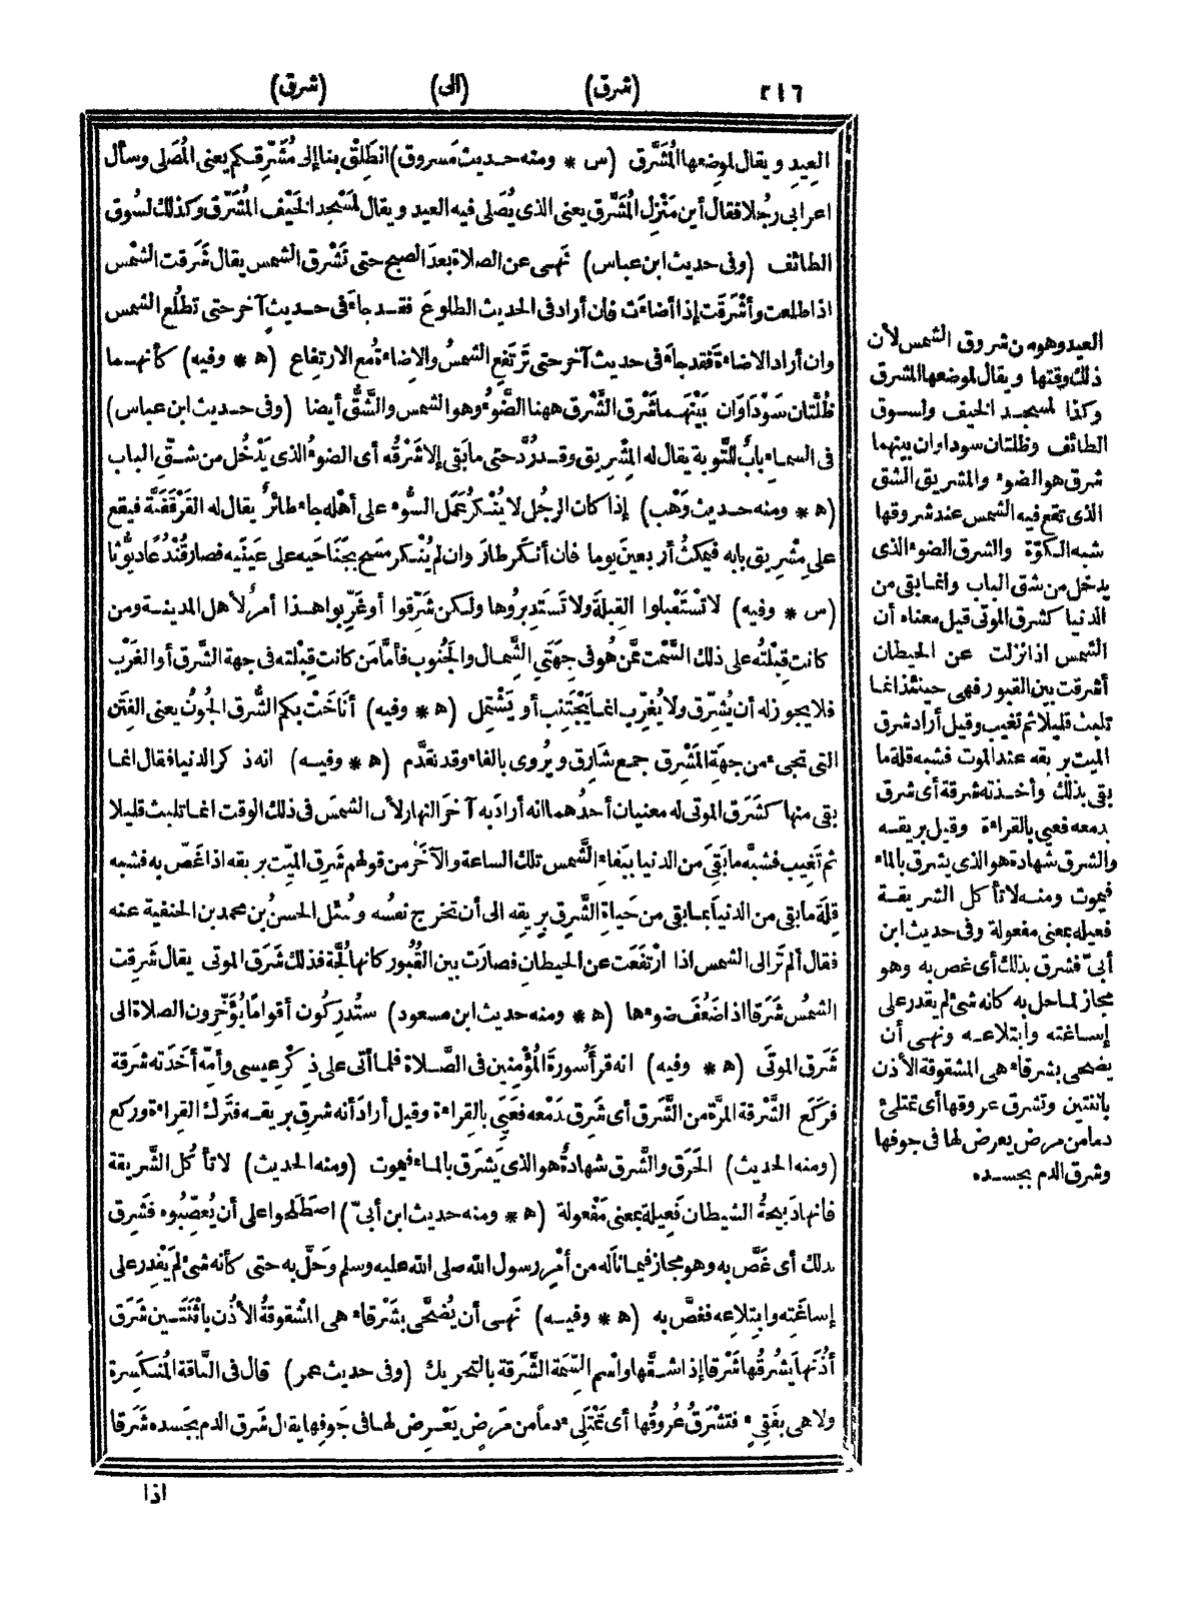 ٢١٦ (شرق) (الى) (شرق)
العِيدِ ويقال لموضعها المُشَرَّق (س * ومنه حديث مَسروق) انطَلِقْ بنا إلى مُشَرَّقِكم يعنى المُصَلى وسأل
اعرابى رجُلا فقال أين مَنْزِل المُشَرَّق يعنى الذى يُصَلى فيه العيد ويقال لمَسْجد الخَيْف المُشَرَّق وكذلك لسُوق
الطائف (وفى حديث ابن عباس) نَهى عن الصلاة بعدَ الصبح حتى تَشْرق الشمس يقال شَرَقت الشمْس
اذا طلعت وأشْرَقَت إذا أضاءَت فان أراد فى الحديث الطلوعَ فقد جاءَ فى حديثٍ آخر حتى تطلُع الشمس
وان أراد الاضاءةَ فقد جاءَ فى حديث آخر حتى تَرتَفِع الشمسُ والإضاءةُ مع الارتِفاع (ه * وفيه) كأنهما
ظُلَّتان سَوْدَاوَان بَيْنَهما شَرْق الشَّرْق ههنا الضَّوءُ وهو الشمس والشَّقُّ أيضا (وفى حديث ابن عباس)
فى السماءِ بابٌ للتَّوبة يقال له المِشْريق وقد رُدَّ حتى ما بَقِى إلا شَرْقُه أى الضوءُ الذى يَدْخُل من شَقّ الباب
(ه * ومنه حديث وَهْب) إذا كان الرجُل لا يُنْكرُ عَمَل السُّوءِ على أهْله جاءَ طائرٌ يقال له القَرْقَفَنَّة فيقع
على مِشْرِيق بابه فيَمكثُ أربعين يوما فان أنكر طارَ وان لم يُنْكر مَسَح بجَنَاحَيه على عَيْنَيه فصار قُنْذُعًا ديُّوثا
(س * وفيه) لا تَسْتَقبلوا القِبلَةَ ولا تَستَدبروها ولكن شَرّقوا أو غَرّبوا هذا أمرٌ لأهل المدينة ومن
كانت قِبْلَتُه على ذلك السَّمْت ممَّن هو فى جِهَتَي الشَّمال والجَنُوب فأمَّا مَن كانت قِبْلته فى جهة الشَّرق أو الغَرْب
فلا يجوز له أن يُشَرّق ولا يُغَرّب انما يَجْتَنِب أو يَشْتمِل (ه * وفيه) أنَاخَتْ بكم الشُّرق الجُونُ يعنى الفِتَن
التى تجىء من جهَةِ المَشْرِق جمع شارِق ويُروى بالفاء وقد تقدَّم (ه * وفيه) انه ذكر الدنيا فقال انما
بقى منها كشَرَق الموتى له معنيان أحدُهما انه أراد به آخرَ النهار لأن الشمسَ فى ذلك الوقت انما تلبث قليلا
ثم تَغِيب فشبَّه ما بَقِىَ من الدنيا ببَقاءِ الشَّمس تلك الساعة والآخَرُ من قولهم شَرِق الميّت بريقه اذا غَصّ به فشبه
قِلَّةَ ما بَقى من الدنيا بما بقى من حَياةِ الشَّرِق بريقه الى أن تخرج نفسُه وسُئل الحسنُ بن محمد بن الحنفية عنه
فقال ألم تَرَ الى الشمس اذا ارْتفَعَت عن الحيطان فصارَت بين القُبُور كانها لُجَّة فذلك شَرَق الموتى يقال شَرِقت
الشمسُ شَرَقا اذا ضَعُفَ ضوءها (ه * ومنه حديث ابن مسعود) ستُدرِكون أقوامًا يُؤَخِّرون الصلاة الى
شَرَق الموتَى (ه * وفيه) انه قرأ سُورةَ المُؤْمِنين فى الصَّلاة فلما أتى على ذِكْر عيسى وأمّه أخَذَته شَرقة
فركَع الشَّرْقة المرَّة من الشَّرَق أى شَرِق بدَمْعه فعَيِيَ بالقراءة وقيل أرادَ أنه شَرِق بريقه فتَرك القراءة وركع
(ومنه الحديث) الحَرَق والشَّرق شهادةٌ هو الذى يَشرَق بالماءِ فيموت (ومنه الحديث) لا تأكُل الشَّريقة
فانها ذَبيحةُ الشيطان فَعِيلة بمعنى مَفْعولة (ه * ومنه حديث ابن أبىّ) اصطَلَحوا على أن يُعصّبُوه فَشَرِق
بذلك أى غَصَّ به وهو مجاز فيما نالَه من أمْرِ رسول الله صلى الله عليه وسلم وحَلَّ به حتى كأنه شىءٌ لم يَقْدِر على
إساغَته وابتِلاعِه فغصَّ به (ه * وفيه) نَهى أن يُضَحَّى بشَرْقاء هى المَشْقوقةُ الأذُن باثْنَتَين شَرَق
أذُنَها يَشرُقُها شَرْقا إذا شقَّها واسْم السِّمَة الشَّرَقة بالتحريك (وفى حديث عمر) قال فى النَّاقة المُنكَسِرة
ولا هى بفَقِىءٍ فتَشْرَقَ عُروقُها أى تَمْتَلِىءَ دماً من مَرَضٍ يَعْرِض لها فى جَوفِها يقال شَرِق الدم بجَسده شَرَقا
اذا
العيد وهو من شروق الشمس لأن
ذلك وقتها ويقال لموضعها المشرق
وكذا لمسجد الخيف ولسوق
الطائف وظلتان سوداوان بينهما
شرق هو الضوء والمشريق الشق
الذى تقع فيه الشمس عند شروقها
شبه الكوّة والشرق الضوء الذى
يدخل من شق الباب وانما بقى من
الدنيا كشرق الموتى قيل معناه أن
الشمس اذا نزلت عن الحيطان
أشرقت بين القبور فهى حينئذ انما
تلبث قليلا ثم تغيب وقيل أراد شرق
الميت بريقه عند الموت فشبه قلة ما
بقى بذلك وأخذته شرقة أى شرق
بدمعه فعيى بالقراءة وقيل بريقه
والشرق شهادة هو الذى يشرق بالماء
فيموت ومنه لا تأكل الشريقة
فعيله بمعنى مفعولة وفى حديث ابن
أبىّ فشرق بذلك أى غص به وهو
مجاز لما حل به كانه شىء لم يقدر على
إساغته وابتلاعه ونهى أن
يضحى بشرقاء هى المشقوقة الأذن
باثنتين وتشرق عروقها أى تمتلئ
دما من مرض يعرض لها فى جوفها
وشرق الدم بجسده